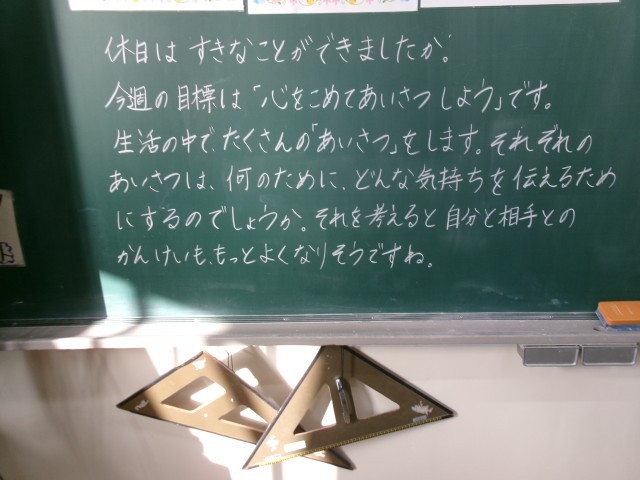 休日は すきなことができましたか。
今週の目標は「心をこめてあいさつしよう」です。
生活の中で、たくさんの「あいさつ」をします。それぞれの
あいさつは、何のために、どんな気持ちを伝えるため
にするのでしょうか。それを考えると自分と相手との
かんけいも、もっとよくなりそうですね。